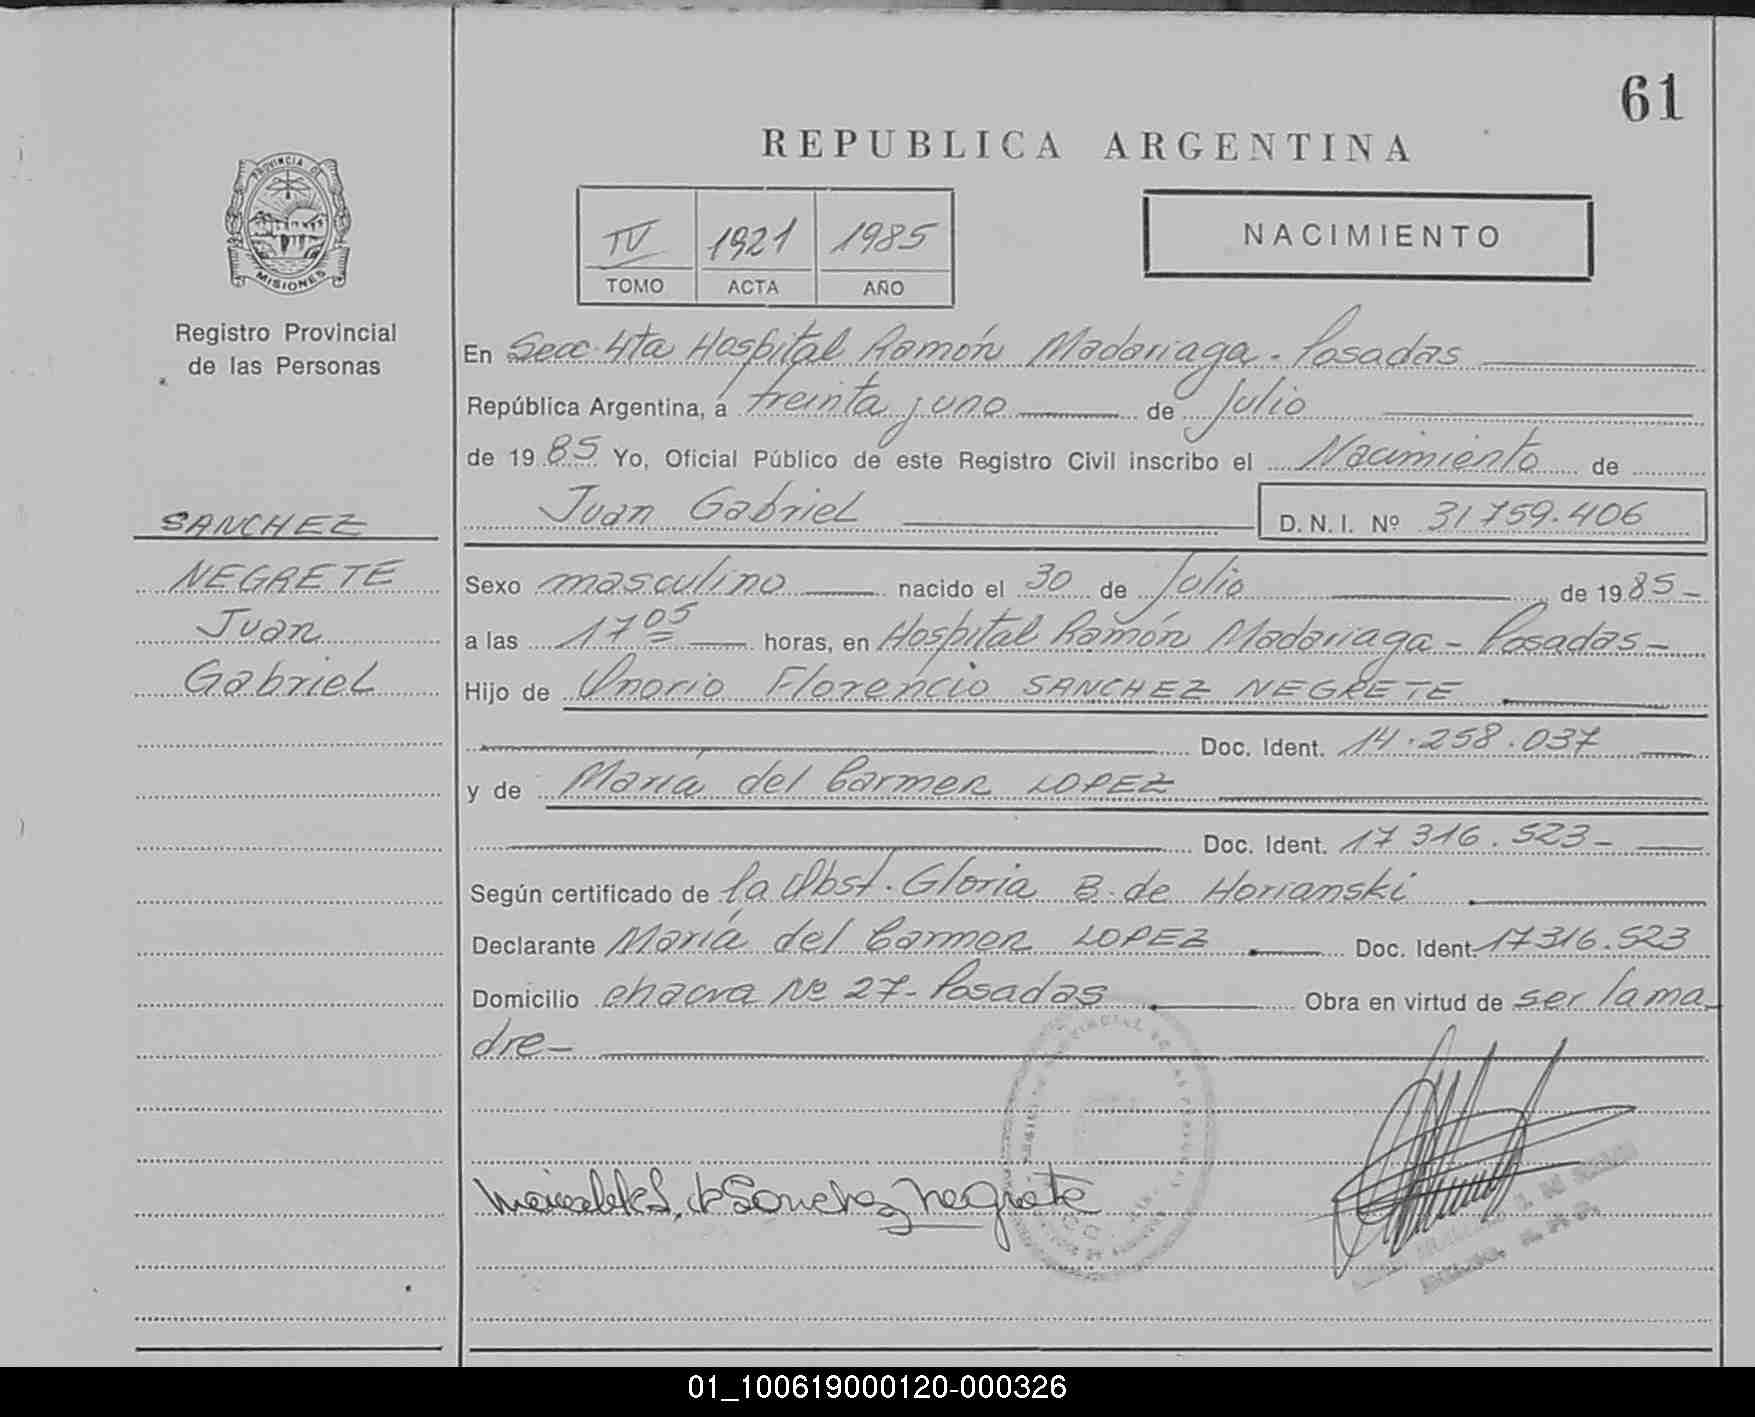 61
REPUBLICA ARGENTINA
PROVINCIA DE
MISIONES
Registro Provincial
de las Personas
IV 1921 1985
TOMO ACTA AÑO
NACIMIENTO
En Secc. 4ta Hospital Ramón Madariaga - Posadas
República Argentina, a treinta y uno de Julio
de 1985 Yo, Oficial Público de este Registro Civil inscribo el Nacimiento de
Juan Gabriel D.N.I. Nº 31759.406
SANCHEZ
NEGRETE
Juan
Gabriel
Sexo masculino nacido el 30 de Julio de 1985-
a las 17 05 horas, en Hospital Ramón Madariaga - Posadas -
Hijo de Onorio Florencio SANCHEZ NEGRETE
Doc. Ident. 14.258.037
y de María del Carmen LOPEZ
Doc. Ident. 17 316.523-
Según certificado de la Obst. Gloria B. de Horianski
Declarante María del Carmen LOPEZ Doc. Ident. 17316.523
Domicilio chacra Nº 27- Posadas Obra en virtud de ser la ma
dre-
de Sanchez Negrete
01_100619000120-000326